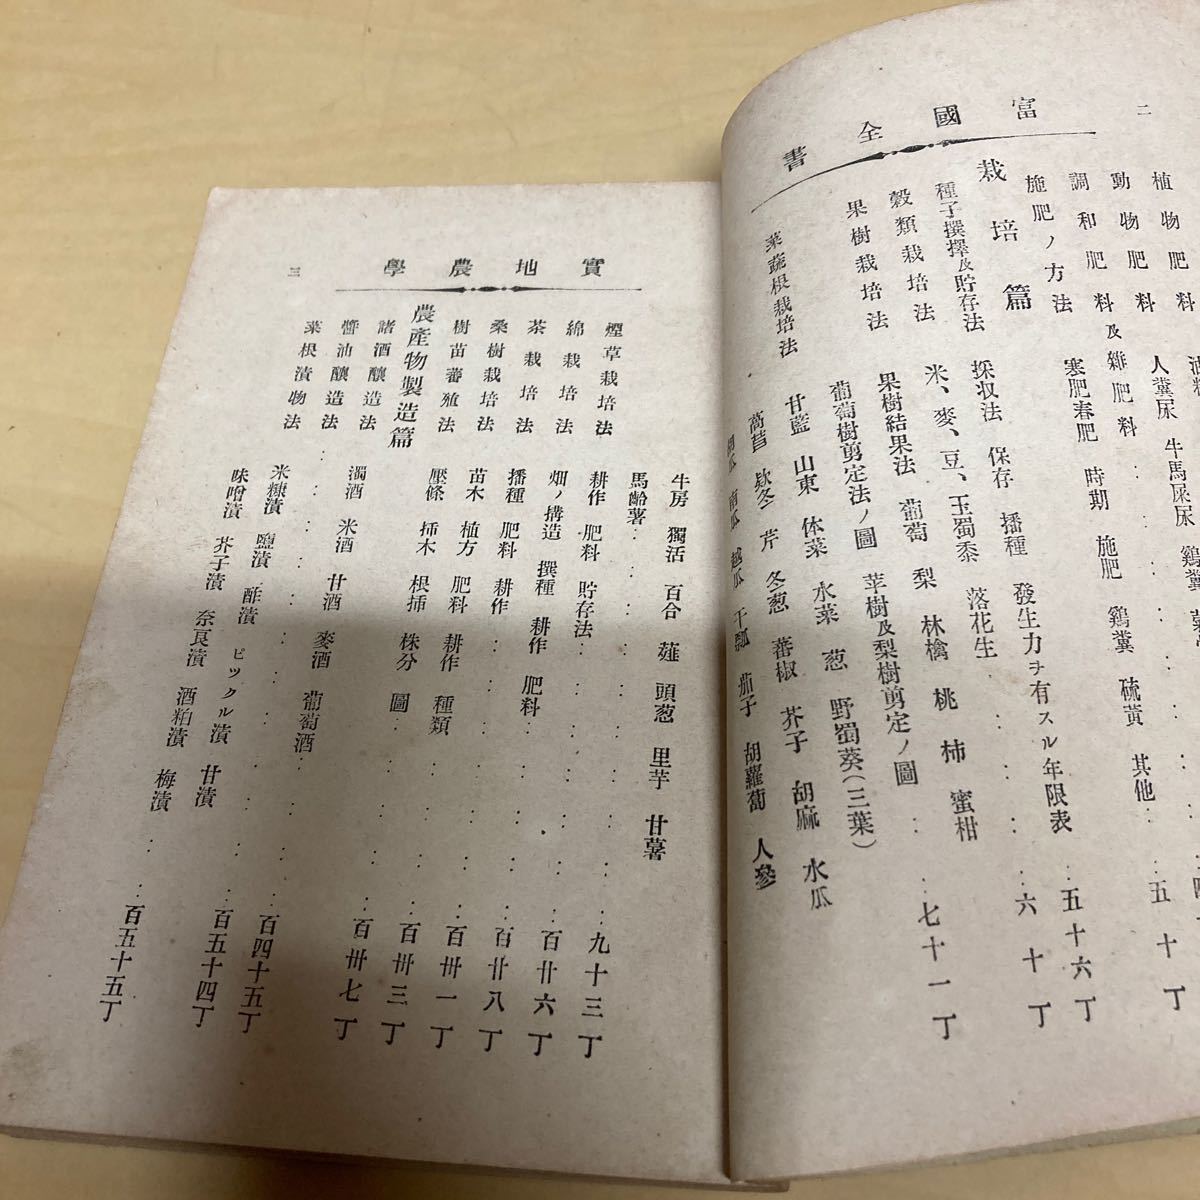 富國全書
二
植物肥料
動物肥料
人糞尿 牛馬屎尿 鷄糞
調和肥料及雜肥料
鷄糞 硫黄 其他
五十丁
施肥ノ方法
寒肥春肥 時期 施肥
五十六丁
栽培篇
種子撰擇及貯存法
採収法 保存 播種 發生力ヲ有スル年限表
六十丁
穀類栽培法
米、麥、豆、玉蜀黍 落花生
七十一丁
果樹栽培法
果樹結果法 葡萄 梨 林檎 桃 柿 蜜柑
葡萄樹剪定法ノ圖 苹樹及梨樹剪定ノ圖
菜蔬根栽培法
甘藍 山東 体菜 水菜 葱 野蜀葵(三葉)
萵苣 欵冬 芹 冬葱 蕃椒 芥子 胡麻 水瓜
胡瓜 南瓜 越瓜 干瓢 茄子 胡蘿蔔 人參
實地農學
三
牛房 獨活 百合 薤 頭葱 里芋 甘薯
馬齡薯
九十三丁
煙草栽培法
耕作 肥料 貯存法
百廿六丁
綿栽培法
畑ノ搆造 撰種 耕作 肥料
百廿八丁
茶栽培法
播種 肥料 耕作
百卅一丁
桑樹栽培法
苗木 植方 肥料 耕作 種類
百卅三丁
樹苗蕃殖法
壓條 挿木 根挿 株分 圖
百卅七丁
農產物製造篇
諸酒釀造法
濁酒 米酒 甘酒 麥酒 葡萄酒
百四十五丁
醬油釀造法
百五十四丁
菜根漬物法
米糠漬 鹽漬 酢漬 ピツクル漬 甘漬
味噌漬 芥子漬 奈良漬 酒粕漬 梅漬
百五十五丁